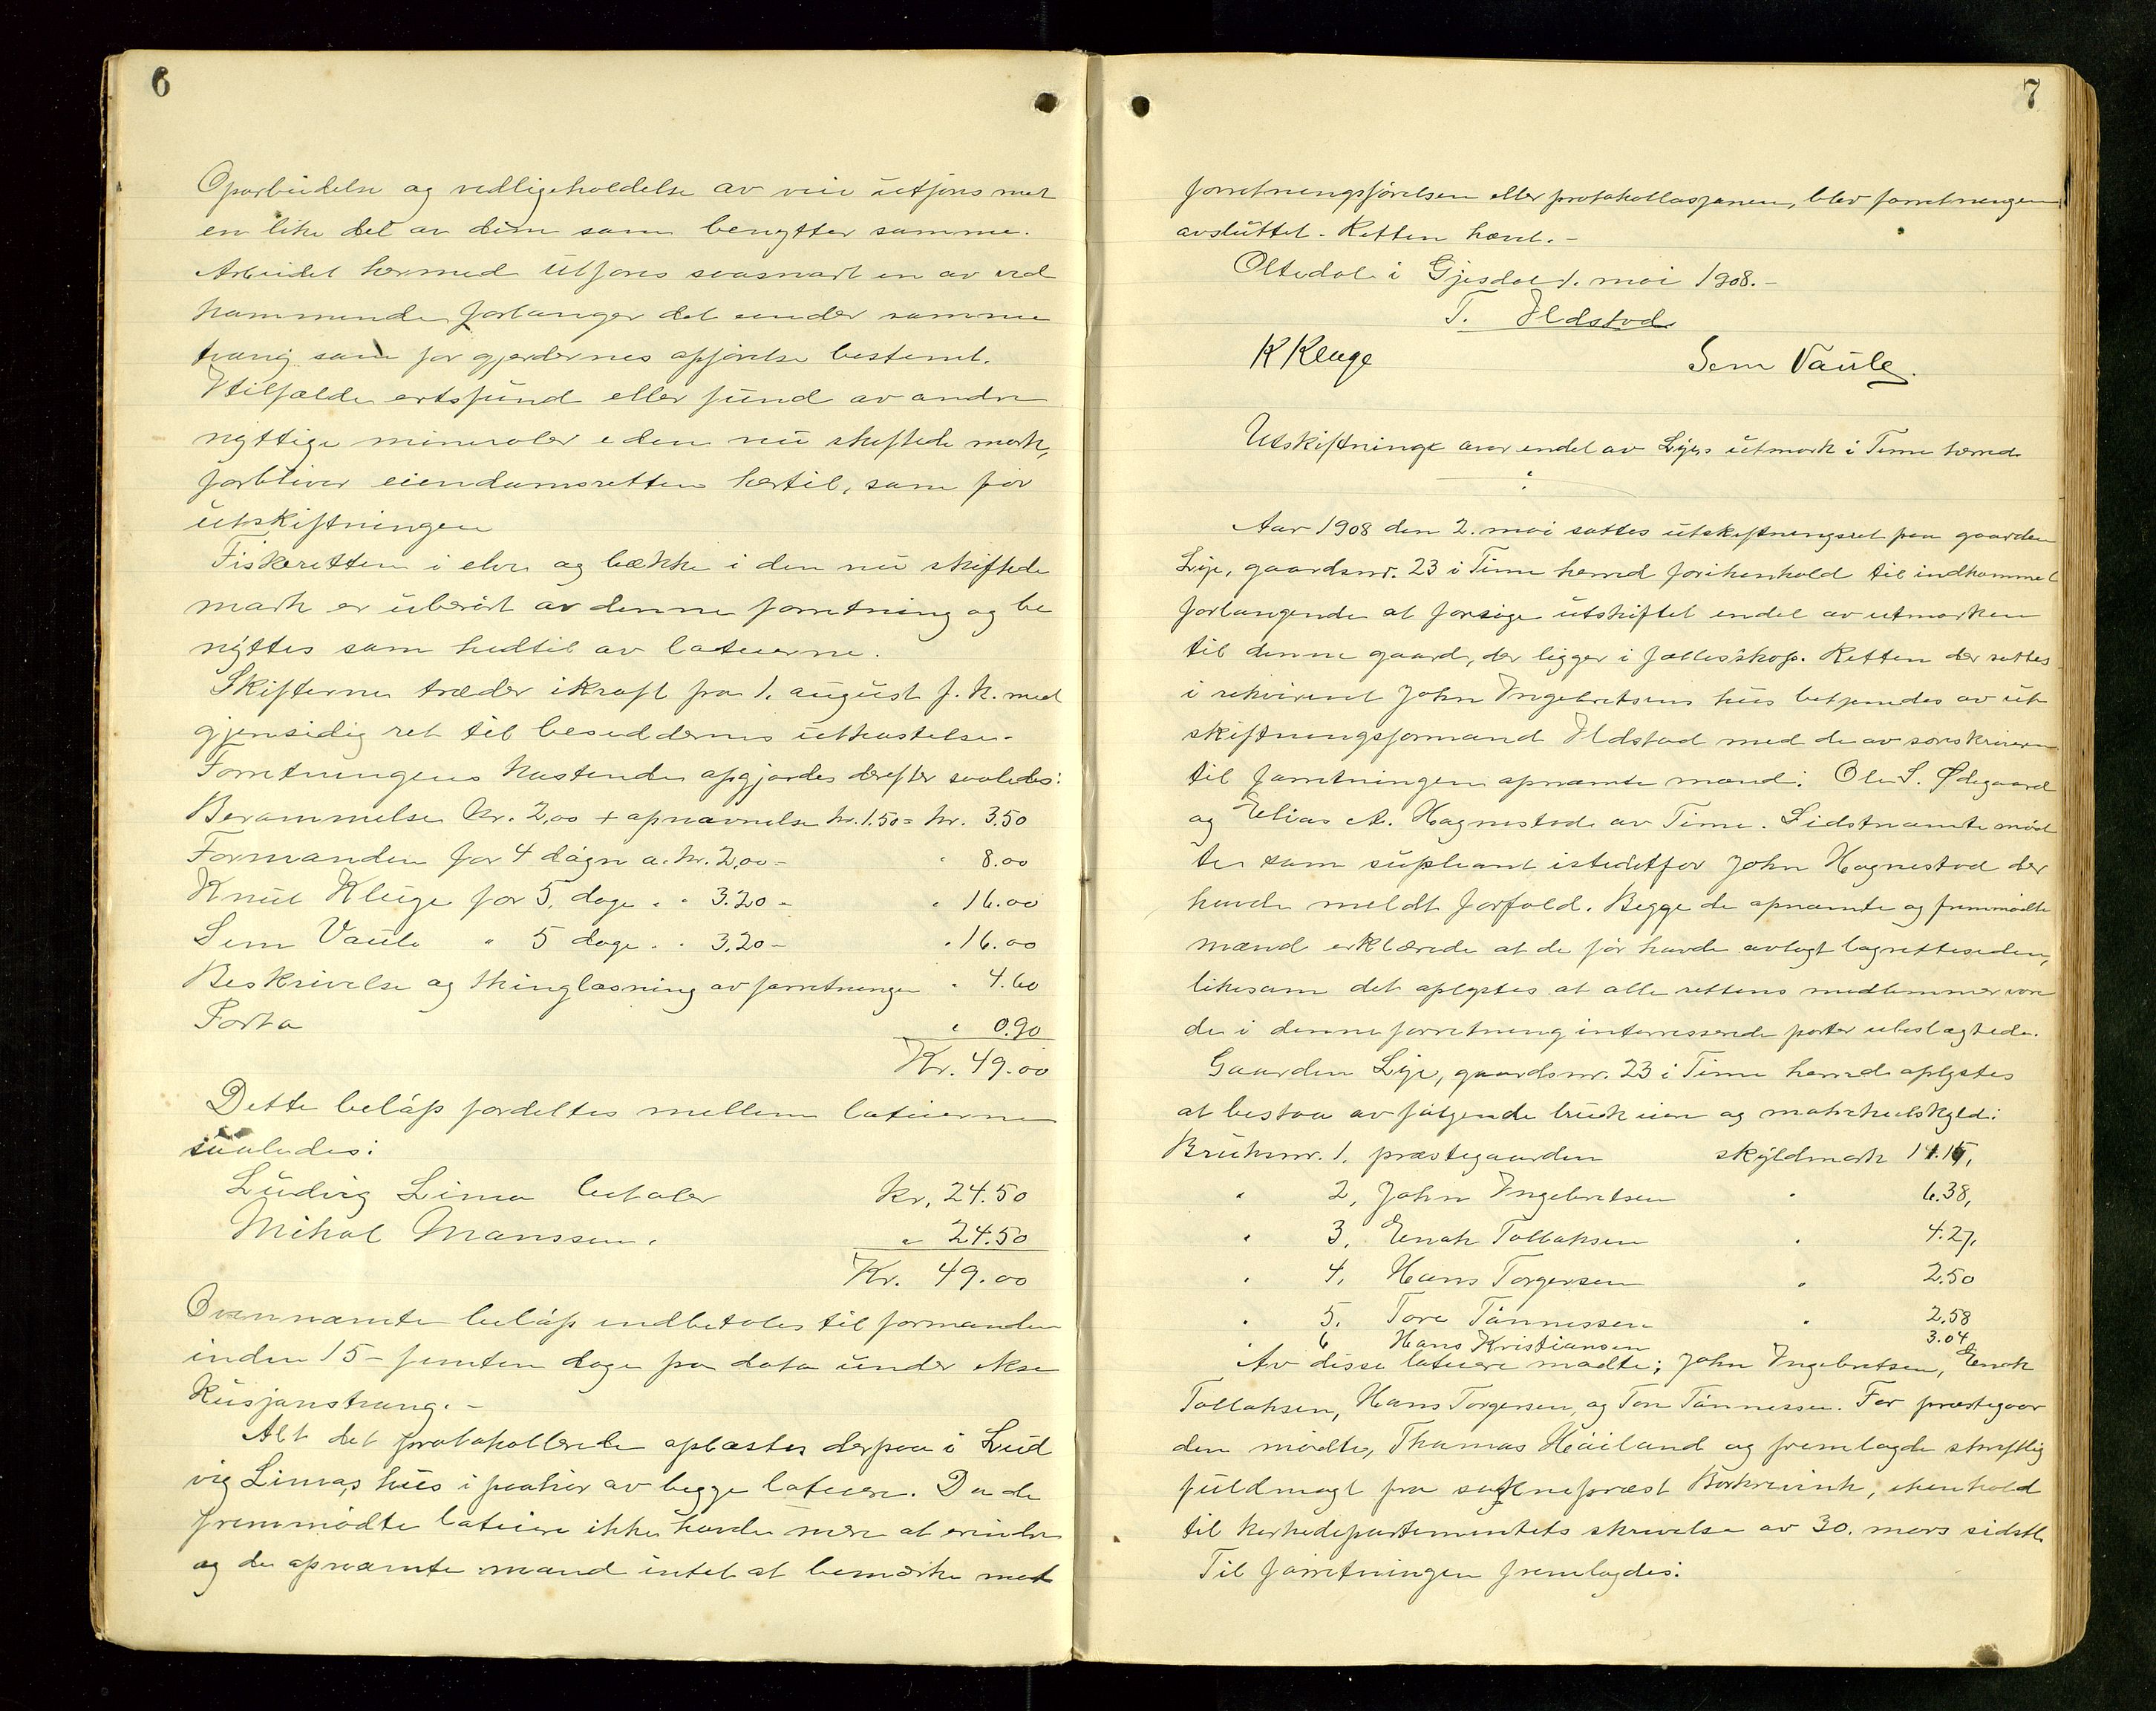 6
Oparbeidelse og vedligeholdelse av veie utføres med
en like del av dem som benytter samme.
Arbeidet hermed utføres saasnart en av ved
kommende forlanger det under samme
tvang som for gjerdernes opførelse bestemt.
I tilfælde ertsfund eller fund av andre
nyttige mineraler i den nu skiftede mark,
forbliver eiendomsretten hertil, som før
utskiftningen
Fiskeretten i elve og bække i den nu skiftede
mark er uberørt av denne forretning og be
nyttes som hedtil av lateierne.
Skifterne træder ikraft fra 1. august f. k. med
gjensidig ret til besiddernes utkastelse.
Forretningens kostende opgjordes derefter saaledes:
Berammelse kr. 2,00 + opnævnelse kr. 1.50 = kr. 3.50
Formanden for 4 døgn a. kr. 2,00 - " 8.00
Knut Kluge for 5, dage " " 3.20 - " 16.00
Sem Vaule " 5 dage " " 3,20 - " 16.00
Beskrivelse og thinglæsning av forretningen " 4.60
Porto " 0.90
Kr. 49.00
Dette beløp fordeltes mellem lateierne
saaledes:
Ludvig Lima betaler kr. 24.50
Mikal Manssen " " 24.50
Kr. 49.00
Ovennævnte beløp indbetales til formanden
inden 15 - femten dage fra dato under ekse
kusjonstvang. -
Alt det protokollerede oplæstes derpaa i Lud
vig Limas hus i påhør av begge lateiere. Da de
fremmødte lateiere ikke havde mere at erindre
og de opnævnte mænd intet at bemærke med
7
forretningsførelsen eller protokollasjonen, blev forretningen
avsluttet. Retten hævet. -
Oltedal i Gjesdal 1. mai 1908. -
T. Ildstad
K Kluge Sem Vaule.
Utskiftning over endel av Lyes utmark i Time herred
Aar 1908 den 2. mai sattes utskiftningsret paa gaarden
Lye, gaardsnr. 23 i Time herred i henhold til indkommet
forlangende at faa sige utskiftet endel av utmarken
til denne gaard, der ligger i fællesskap. Retten der sattes
i rekvirent John Ingebretsens hus betjendes av ut
skiftningsformand Ildstad med de av sorskriveren
til forretningen opnævnte mænd: Ole S. Ødegaard
og Elias A. Hognestad av Time. Sidstnævnte mød
te som supleant istedetfor John Hognestad der
havde meldt forfald. Begge de opnævnte og fremmødte
mænd erklærede at de før havde avlagt lagretteseden,
likesom det oplystes at alle rettens medlemmer vare
de i denne forretning interesserede parter ubeslægtede.
Gaarden Lye, gaardsnr. 23 i Time herred oplystes
at bestaa av følgende bruk eiere og matrikulskyld:
Bruksnr. 1. præstegaarden skyldmark 14.15,
" 2, John Ingebretsen " 6.38,
" 3, Enok Tollaksen " 4.27,
" 4, Hans Torgersen " 2.50
" 5, Tore Tønnessen " 2.58
" 6 Hans Kristiansen 3.04
Av disse lateiere mødte: John Ingebretsen, Enok
Tollaksen, Hans Torgersen, og Tore Tønnessen. For præstegaar
den mødte, Thomas Håiland og fremlagde skriftlig
fuldmagt fra sognepræst Borkrevink, i henhold
til kirkedepartementets skrivelse av 30. mars sidstl.
Til forretningen fremlagdes: